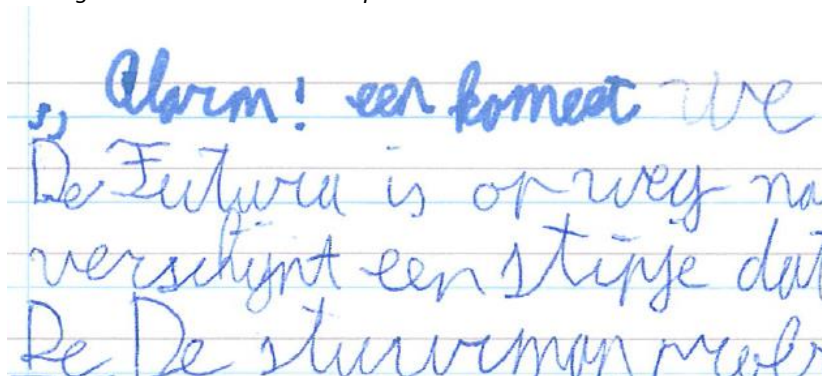 „ Alarm! een komeet we
De Futura is op weg na
verschijnt een stipje dat
De De stuurman